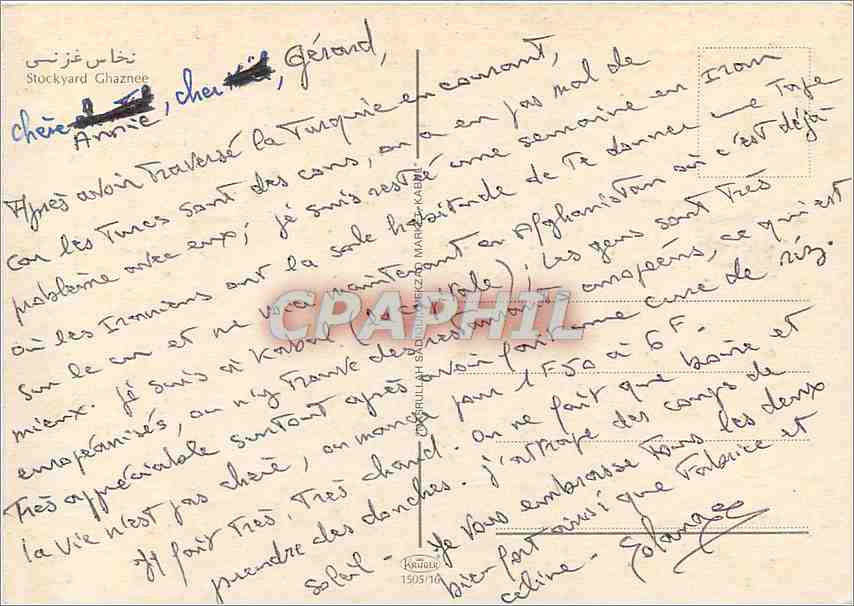 نخاس غزنی
Stockyard Ghaznee
chère Annie, cher Gérard,
Après avoir traversé la Turquie en courant,
car les Turcs sont des cons, on a eu pas mal de
problème avec eux; je suis resté une semaine en Iran
où les Iraniens ont la sale habitude de te donner une tape
sur le cul et me voici maintenant en Afghanistan où c'est déjà
mieux. Je suis à Kabul (la capitale); les gens sont très
européanisés, on y trouve des restaurants européens, ce qui est
très appréciable surtout après avoir fait une cure de riz.
la vie n'est pas chère, on mange pour 1F50 à 6F.
Il fait très, très chaud. On ne fait que boire et
prendre des douches. J'attrape des coups de
soleil - Je vous embrasse tous les deux
bien fort ainsi que Fabrice et
céline - Solange
NASRULLAH MARKET-KABUL
CPAPHIL
KRÜGER
1505/16